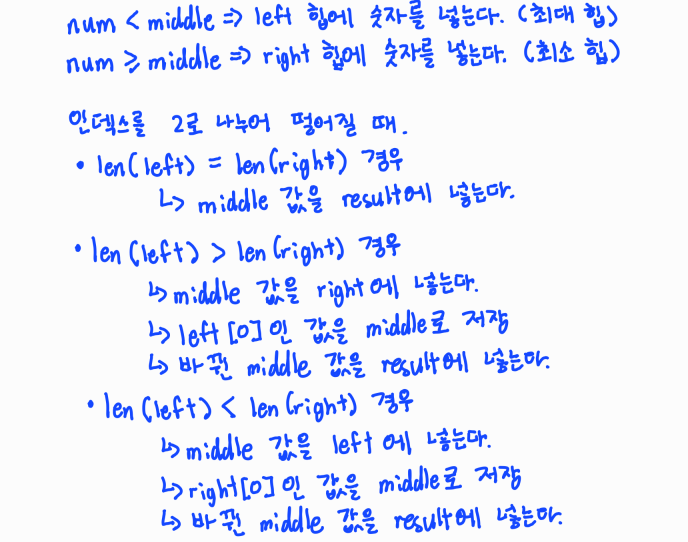 num < middle => left 힙에 숫자를 넣는다. (최대 힙)
num ≥ middle => right 힙에 숫자를 넣는다. (최소 힙)
인덱스를 2로 나누어 떨어질 때.
• len(left) = len(right) 경우
↳ middle 값을 result에 넣는다.
• len(left) > len(right) 경우
↳ middle 값을 right에 넣는다.
↳ left[0]인 값을 middle로 저장
↳ 바뀐 middle 값을 result에 넣는다.
• len(left) < len(right) 경우
↳ middle 값을 left에 넣는다.
↳ right[0]인 값을 middle로 저장
↳ 바뀐 middle 값을 result에 넣는다.